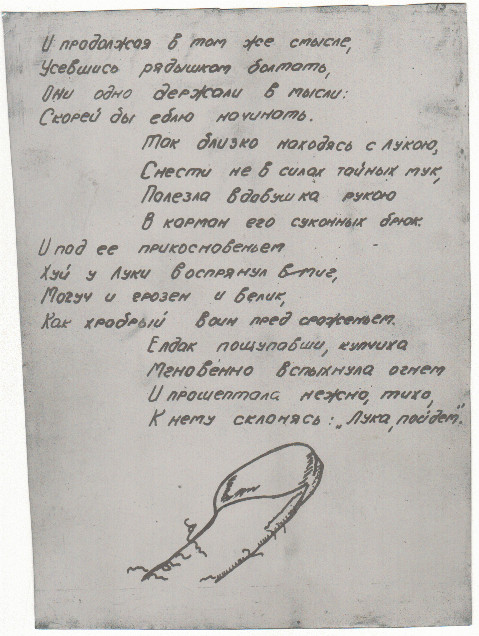 И продолжая в том же смысле,
Усевшись рядышком болтать,
Они одно держали в мысли:
Скорей бы еблю начинать.
Так близко находясь с Лукою,
Снести не в силах тайных мук,
Полезла вдовушка рукою
В карман его суконных брюк.
И под ее прикосновеньем
Хуй у Луки воспрянул в миг,
Могуч и грозен и велик,
Как храбрый воин пред сраженьем.
Елдак пощупавши, купчиха
Мгновенно вспыхнула огнем
И прошептала нежно, тихо,
К нему склонясь: „Лука, пойдем".